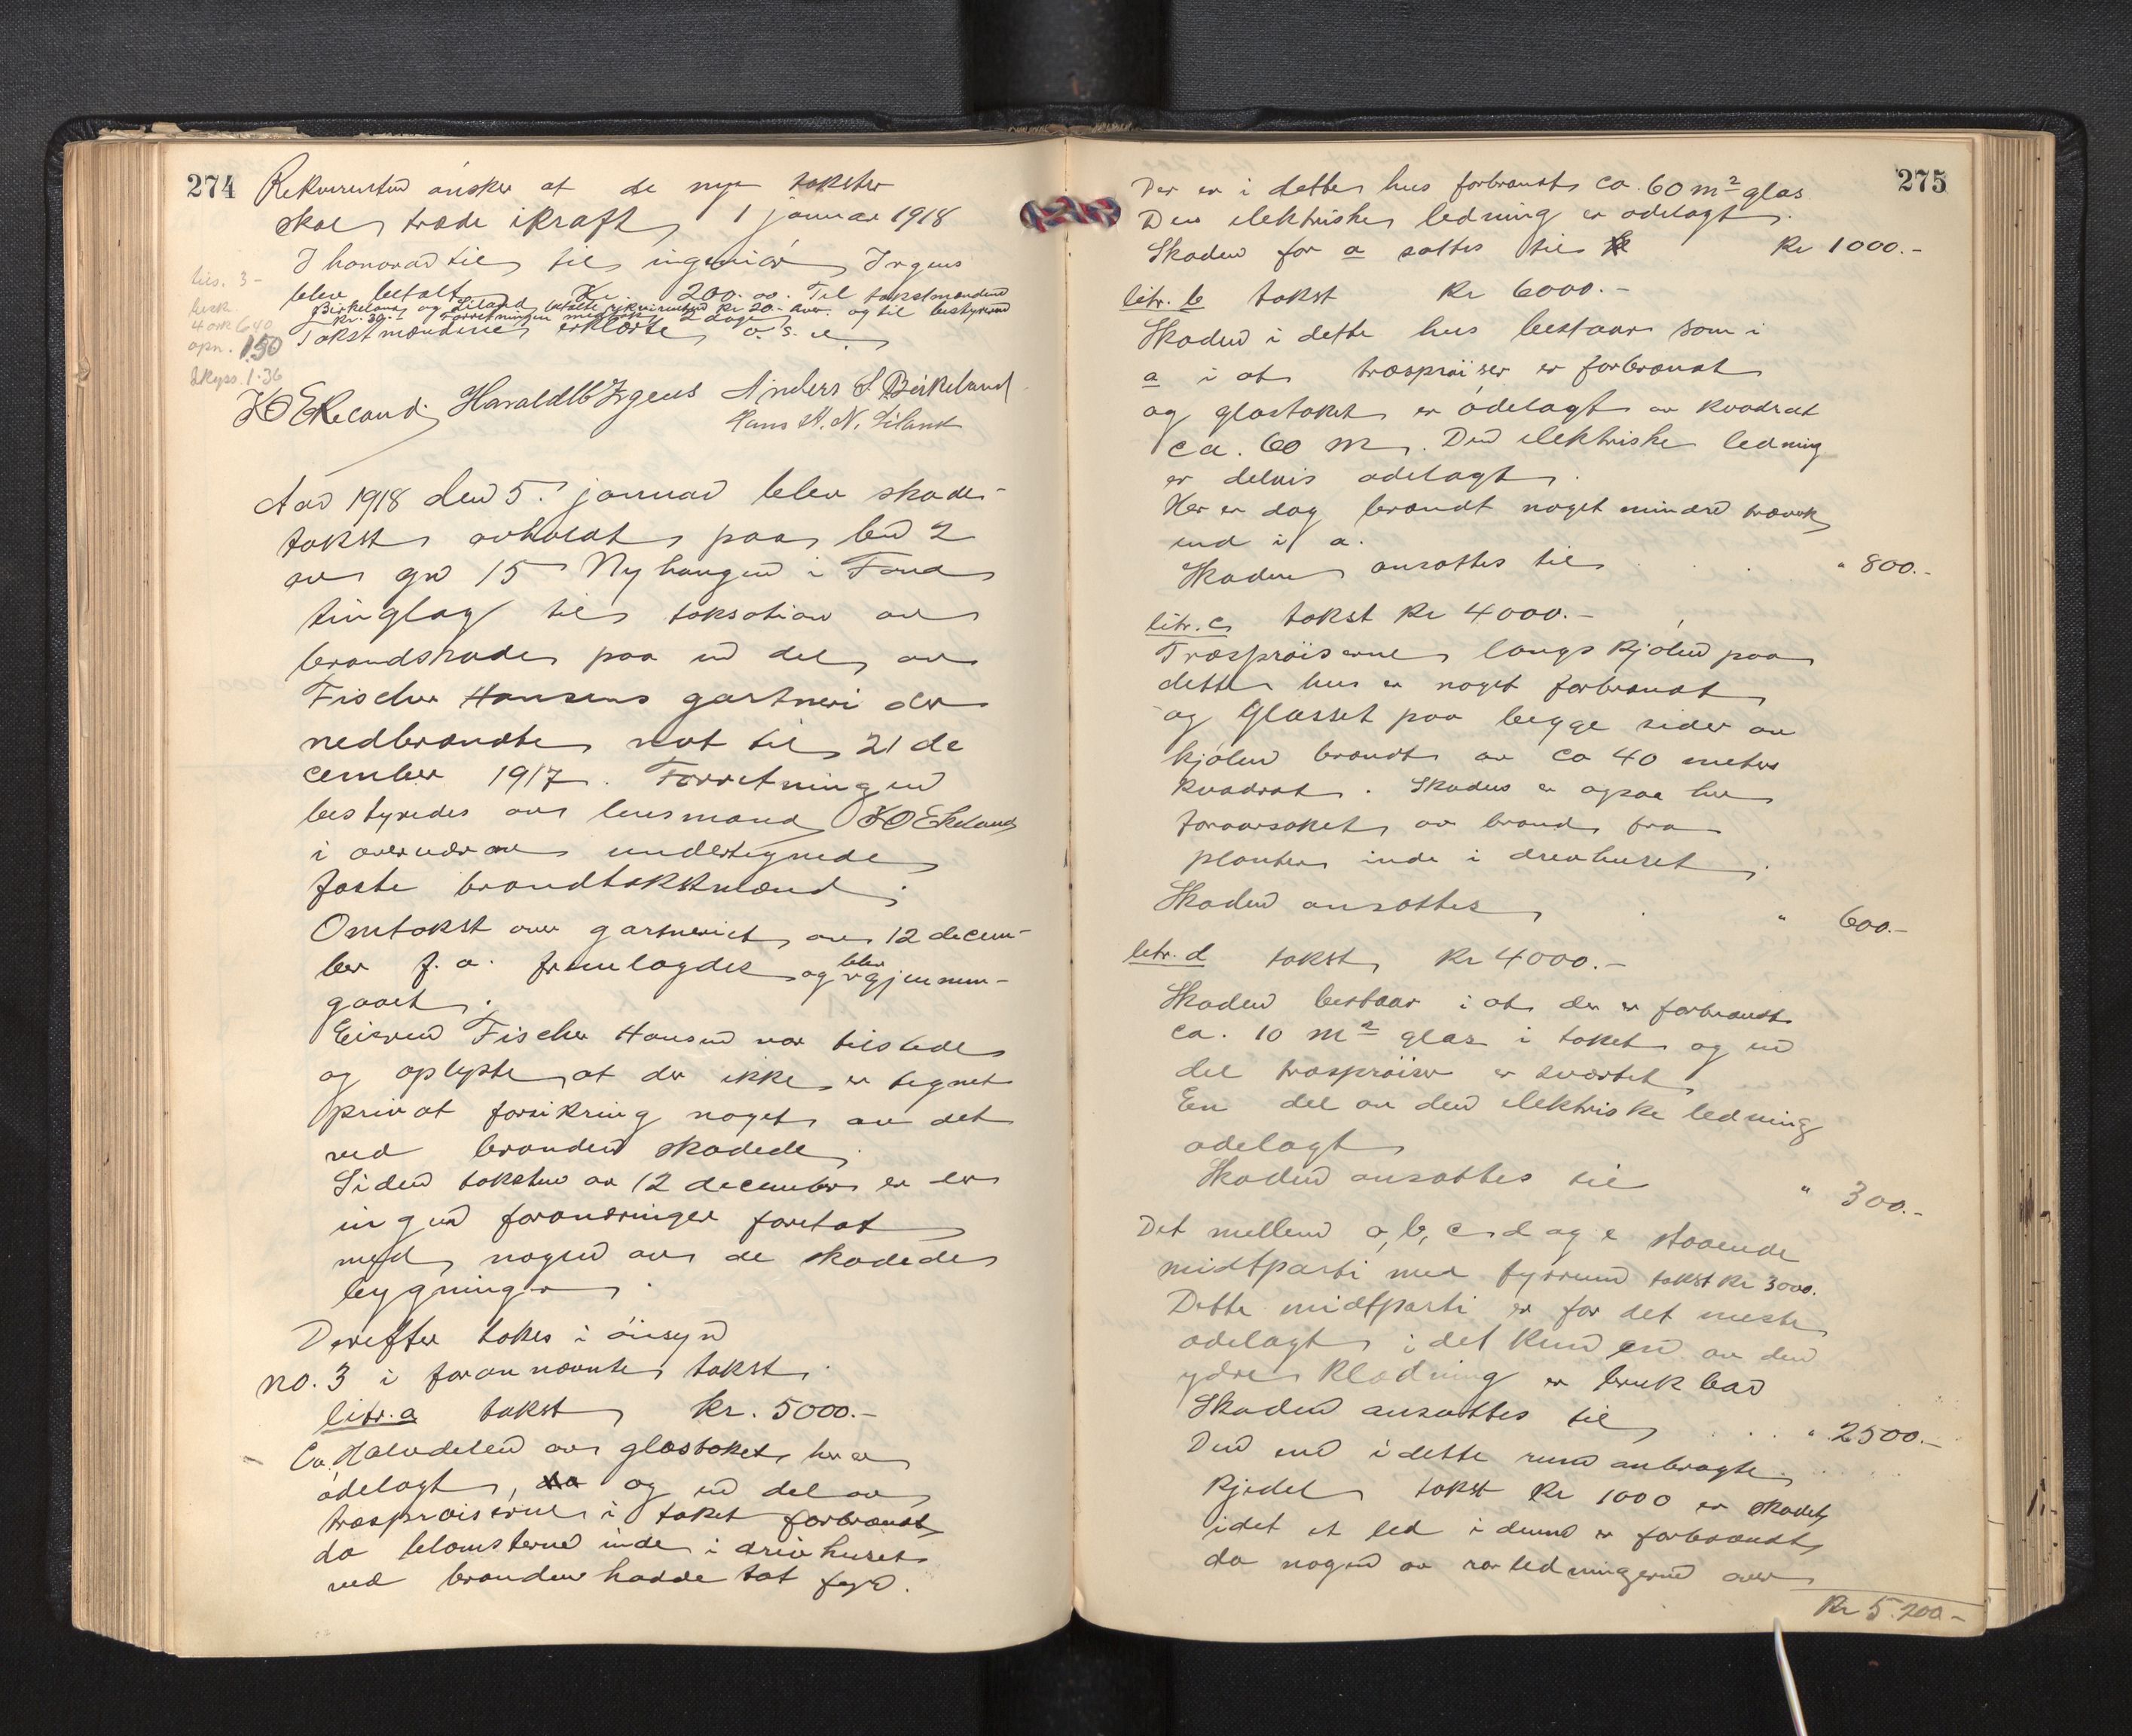 274
Rekvirenten ønsker at de nye takster
skal træde ikraft 1 januar 1918
I honorar til ingeniør Irgens
blev betalt Kr. 200.00. Til takstmændene
Birkeland og Liland betalte rekvirenten Kr 20.- hver og til bestyreren
Kr. 30.- Forretningen medtok 2 dage
Takstmændene erklærte o. s. v.
tils. 3-
besk.
4 ark 6.40
opn. 1.50
skyss. 1.36
K O Ekeland Harald B Irgens Anders S Birkeland
Hans H. N. Liland
Aar 1918 den 5. januar blev skade-
takst avholdt paa bno 2
av gno 15 Nyhaugen i Fana
tinglag til taksation av
brandskade paa en del av
Fischer Hansens gartneri der
nedbrændte nat til 21 de
cember 1917. Forretningen
bestyredes av lensmand K O Ekeland
i overvær av undertegnede
faste brandtakstmænd.
Omtakst over gartneriet av 12 decem-
ber f. a. fremlagdes og blev gjennem-
gaaet.
Eieren Fischer Hansen var tilstede
og oplyste at der ikke er tegnet
privat forsikring noget av det
ved branden skadede.
Siden taksten av 12 december er der
ingen forandringer foretat
med nogen av de skadede
bygninger.
Derefter tokes i øiesyn
no. 3 i forannævnte takst.
litr. a takst kr. 5000.-
Ca. Halvdelen av glastaket her er
ødelagt, og en del av
træsprøiserne i taket forbrændt
da blomsterne inde i drivhuset
ved branden hadde tat fyr.
275
Der er i dette hus forbrændt ca. 60 m² glas
Den elektriske ledning er ødelagt.
Skaden for a sættes til Kr 1000.-
litr. b takst Kr 6000.-
Skaden i dette hus bestaar som i
a i at træsprøiser er forbrændt
og glastaket er ødelagt av kvadrat
ca. 60 m. Den elektriske ledning
er delvis ødelagt.
Her er dog brændt noget mindre træverk
end i a.
Skaden ansættes til . . . " 800.-
litr. c takst Kr 4000.-
Træsprøiserne langs kjølen paa
dette hus er noget forbrændt
og Glasset paa begge sider av
kjølen brændt av ca 40 meter
kvadrat. Skaden er ogsaa her
foraarsaket av brand fra
planter inde i drivhuset.
Skaden ansættes . " 600.-
litr. d takst Kr 4000.-
Skaden bestaar i at der er forbrændt
ca. 10 m² glas i taket og en
del træsprøiser er sværtet.
En del av den elektriske ledning
ødelagt
Skaden ansættes til " 300.-
Det mellem a, b, c, d og e staaende
midtparti med fyrrum takst Kr 3000.
Dette midtparti er for det meste
ødelagt i det kun en av den
ydre klædning er brukbar
Skaden ansættes til . . . " 2500.-
Den ene i dette rum anbragte
Kjedel takst Kr 1000 er skadet
idet et led i denne er forbrændt
da nogen av rørledningerne over
Kr 5.200.-